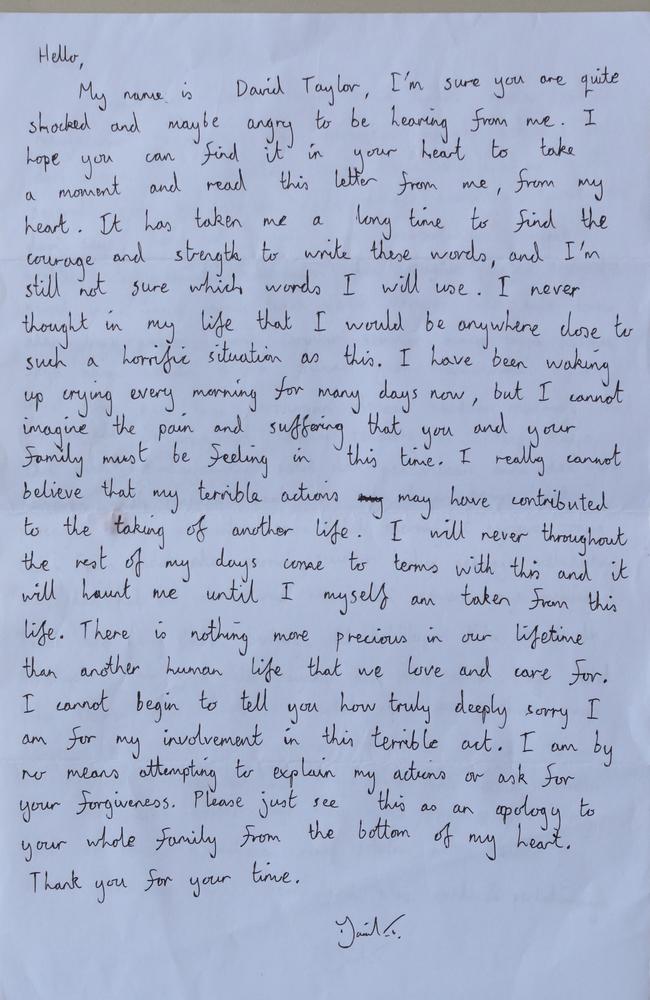 Hello,
My name is David Taylor, I'm sure you are quite
shocked and maybe angry to be hearing from me. I
hope you can find it in your heart to take
a moment and read this letter from me, from my
heart. It has taken me a long time to find the
courage and strength to write these words, and I'm
still not sure which words I will use. I never
thought in my life that I would be anywhere close to
such a horrific situation as this. I have been waking
up crying every morning for many days now, but I cannot
imagine the pain and suffering that you and your
family must be feeling in this time. I really cannot
believe that my terrible actions may have contributed
to the taking of another life. I will never throughout
the rest of my days come to terms with this and it
will haunt me until I myself am taken from this
life. There is nothing more precious in our lifetime
than another human life that we love and care for.
I cannot begin to tell you how truly deeply sorry I
am for my involvement in this terrible act. I am by
no means attempting to explain my actions or ask for
your forgiveness. Please just see this as an apology to
your whole family from the bottom of my heart.
Thank you for your time.